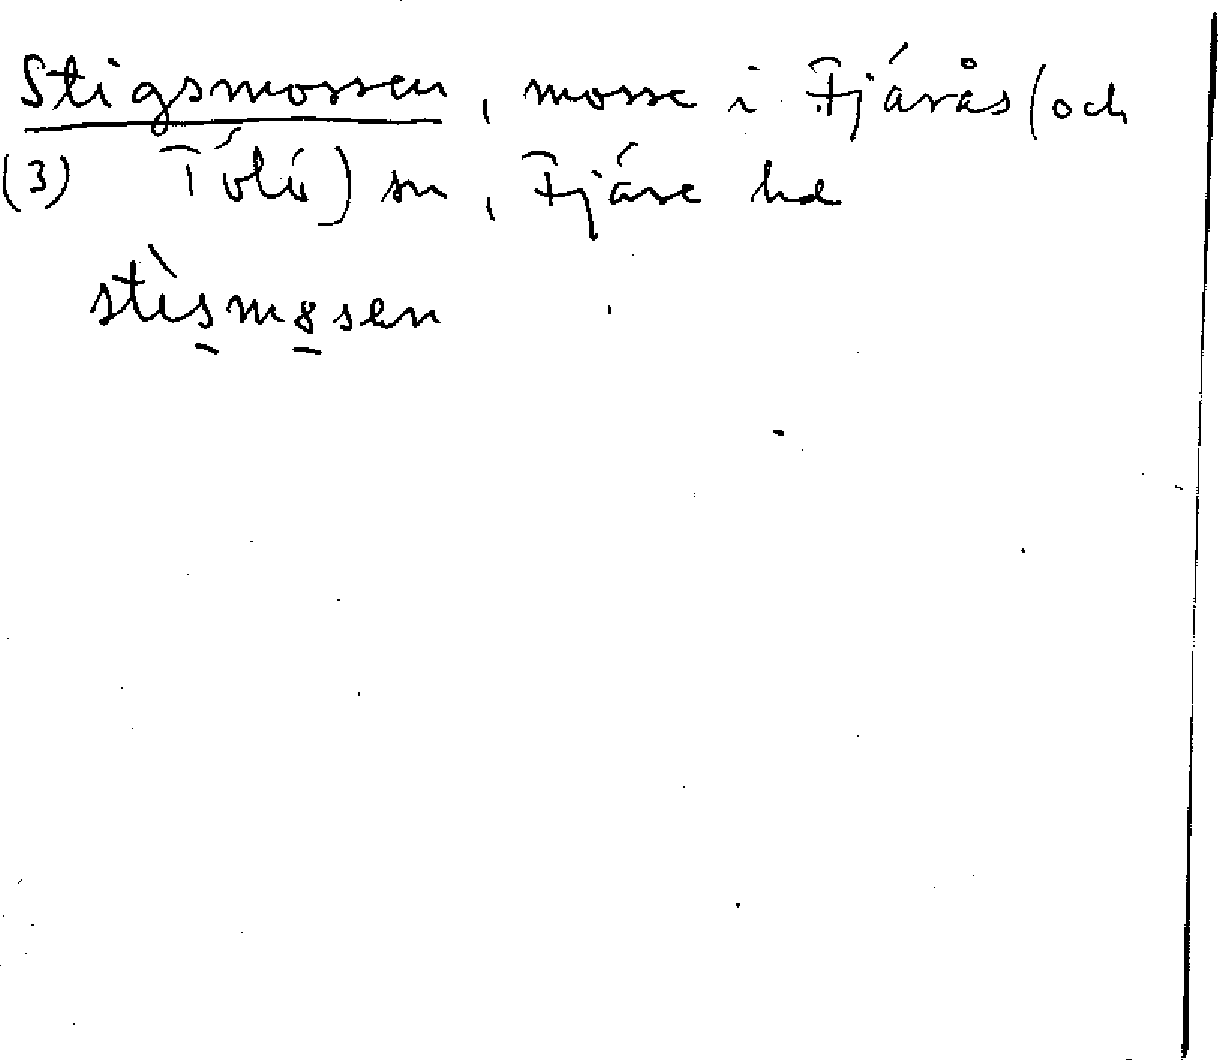 Stigsmossen, mosse i Fjärås (och
(3) Tölö) sn, Fjäre hd
stìsm8sen